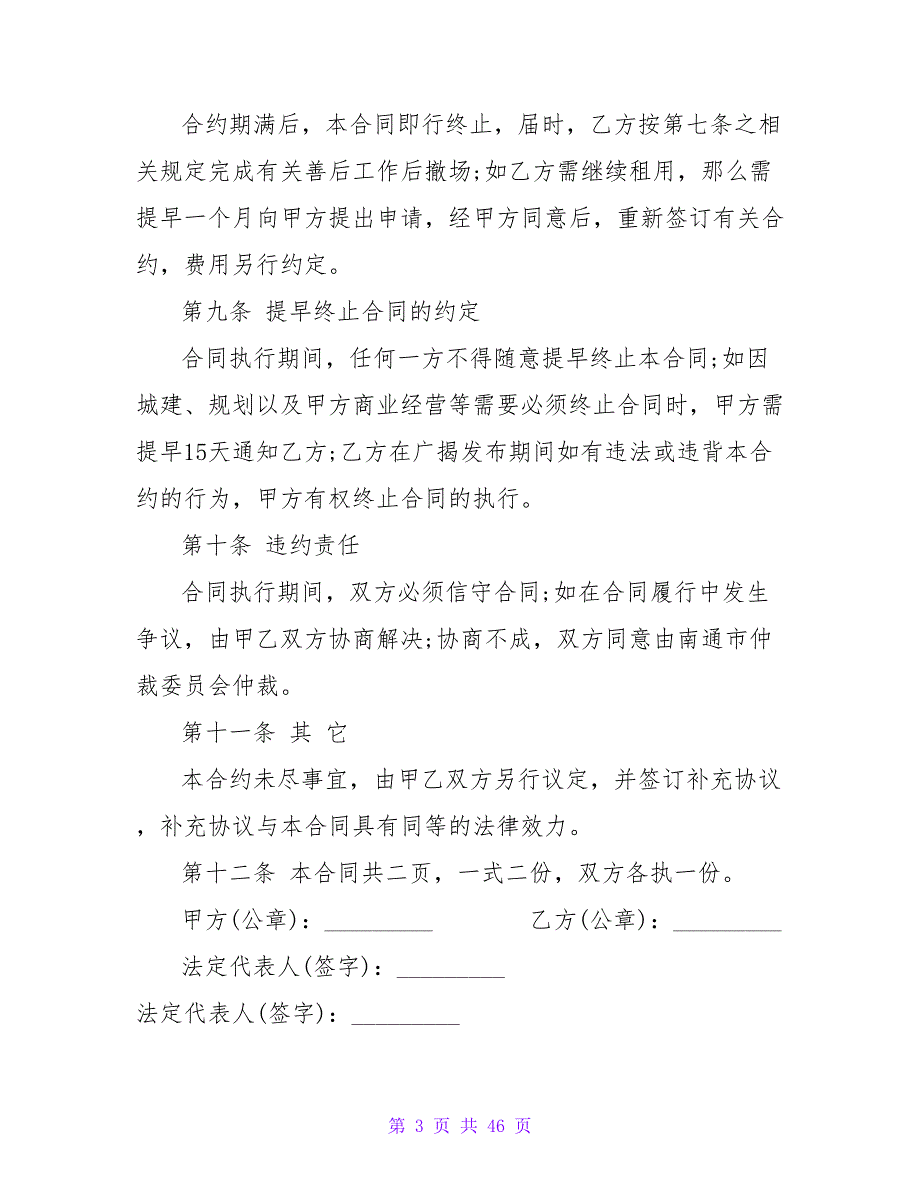 合约期满后，本合同即行终止，届时，乙方按第七条之相
关规定完成有关善后工作后撤场;如乙方需继续租用，那么需
提早一个月向甲方提出申请，经甲方同意后，重新签订有关合
约，费用另行约定。
第九条 提早终止合同的约定
合同执行期间，任何一方不得随意提早终止本合同;如因
城建、规划以及甲方商业经营等需要必须终止合同时，甲方需
提早15天通知乙方;乙方在广揭发布期间如有违法或违背本合
约的行为，甲方有权终止合同的执行。
第十条 违约责任
合同执行期间，双方必须信守合同;如在合同履行中发生
争议，由甲乙双方协商解决;协商不成，双方同意由南通市仲
裁委员会仲裁。
第十一条 其 它
本合约未尽事宜，由甲乙双方另行议定，并签订补充协议
，补充协议与本合同具有同等的法律效力。
第十二条 本合同共二页，一式二份，双方各执一份。
甲方(公章)：_________ 乙方(公章)：_________
法定代表人(签字)：_________
法定代表人(签字)：_________
第 3 页 共 46 页